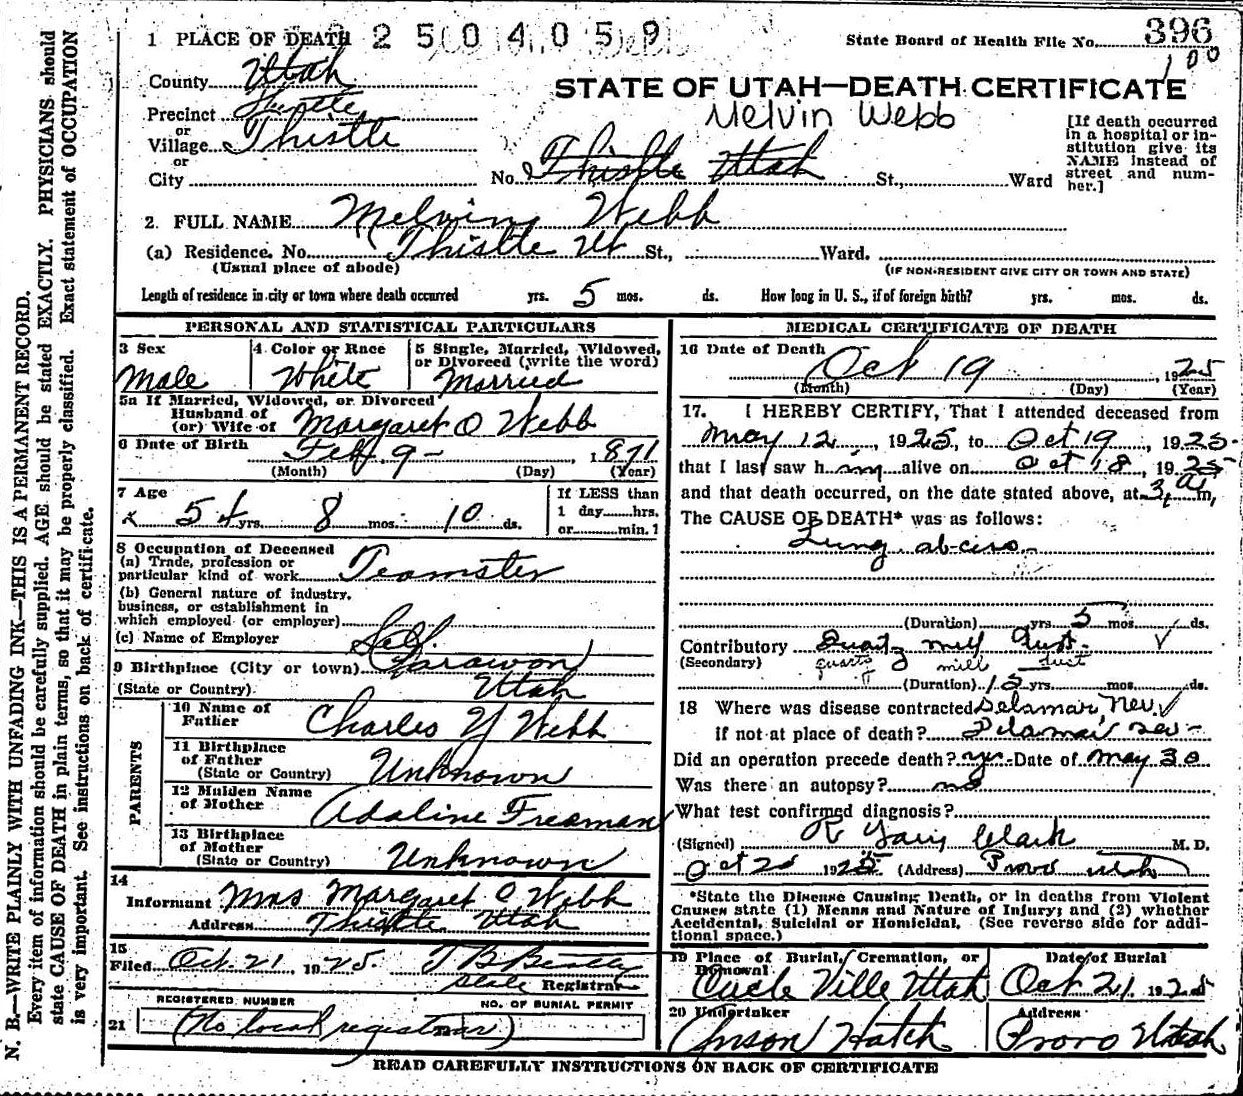 1 PLACE OF DEATH 2 5 0 4 0 5 9
State Board of Health File No. 396
1 00
County Utah
STATE OF UTAH—DEATH CERTIFICATE
Precinct Thistle
Melvin Webb
or
Village Thistle
or
City
No. Thistle Utah St., Ward
[If death occurred
in a hospital or in-
stitution give its
NAME instead of
street and num-
ber.]
2. FULL NAME Melvin Webb
(a) Residence. No. Thistle Ut St., Ward.
(Usual place of abode)
(IF NON-RESIDENT GIVE CITY OR TOWN AND STATE)
Length of residence in city or town where death occurred yrs. 5 mos. ds. How long in U. S., if of foreign birth? yrs. mos. ds.
PERSONAL AND STATISTICAL PARTICULARS
3 Sex
Male
4 Color or Race
White
5 Single, Married, Widowed,
or Divorced (write the word)
Married
5a If Married, Widowed, or Divorced
Husband of
(or) Wife of Margaret O Webb
6 Date of Birth Feb 9 - , 1871
(Month) (Day) (Year)
7 Age
54 yrs. 8 mos. 10 ds.
If LESS than
1 day hrs.
or min.?
8 Occupation of Deceased
(a) Trade, profession or
particular kind of work Teamster
(b) General nature of industry,
business, or establishment in
which employed (or employer)
(c) Name of Employer Self
9 Birthplace (City or town) Parawon
(State or Country) Utah
PARENTS
10 Name of
Father Charles Y Webb
11 Birthplace
of Father
(State or Country) Unknown
12 Maiden Name
of Mother Adaline Freeman
13 Birthplace
of Mother
(State or Country) Unknown
14
Informant Mrs Margaret O Webb
Address Thistle Utah
15
Filed Oct. 21, 1925. T B Beatty
State Registrar
REGISTERED NUMBER NO. OF BURIAL PERMIT
21 (No local registrar)
MEDICAL CERTIFICATE OF DEATH
16 Date of Death
Oct 19, 1925
(Month) (Day) (Year)
17. I HEREBY CERTIFY, That I attended deceased from
May 12, 1925, to Oct 19, 1925
that I last saw him alive on Oct 18, 1925
and that death occurred, on the date stated above, at 3 a m,
The CAUSE OF DEATH* was as follows:
Lung abcess
(Duration) yrs. 5 mos. ds.
Contributory Quartz mill dust
(Secondary) quartz mill dust
(Duration) 15 yrs. mos. ds.
18 Where was disease contracted Delamar Nev.
if not at place of death? Delamar Nev
Did an operation precede death? yes Date of May 30
Was there an autopsy? no
What test confirmed diagnosis?
(Signed) Clark M. D.
Oct 20 1925 (Address) Provo Utah
*State the Disease Causing Death, or in deaths from Violent
Causes state (1) Means and Nature of Injury; and (2) whether
Accidental, Suicidal or Homicidal. (See reverse side for addi-
tional space.)
19 Place of Burial, Cremation, or
Removal
Circle Ville Utah
Date of Burial
Oct 21, 1925
20 Undertaker
Anson Hatch
Address
Provo Utah
READ CAREFULLY INSTRUCTIONS ON BACK OF CERTIFICATE
N. B.—WRITE PLAINLY WITH UNFADING INK—THIS IS A PERMANENT RECORD.
Every item of information should be carefully supplied. AGE should be stated EXACTLY. PHYSICIANS should
state CAUSE OF DEATH in plain terms, so that it may be properly classified. Exact statement of OCCUPATION
is very important. See instructions on back of certificate.